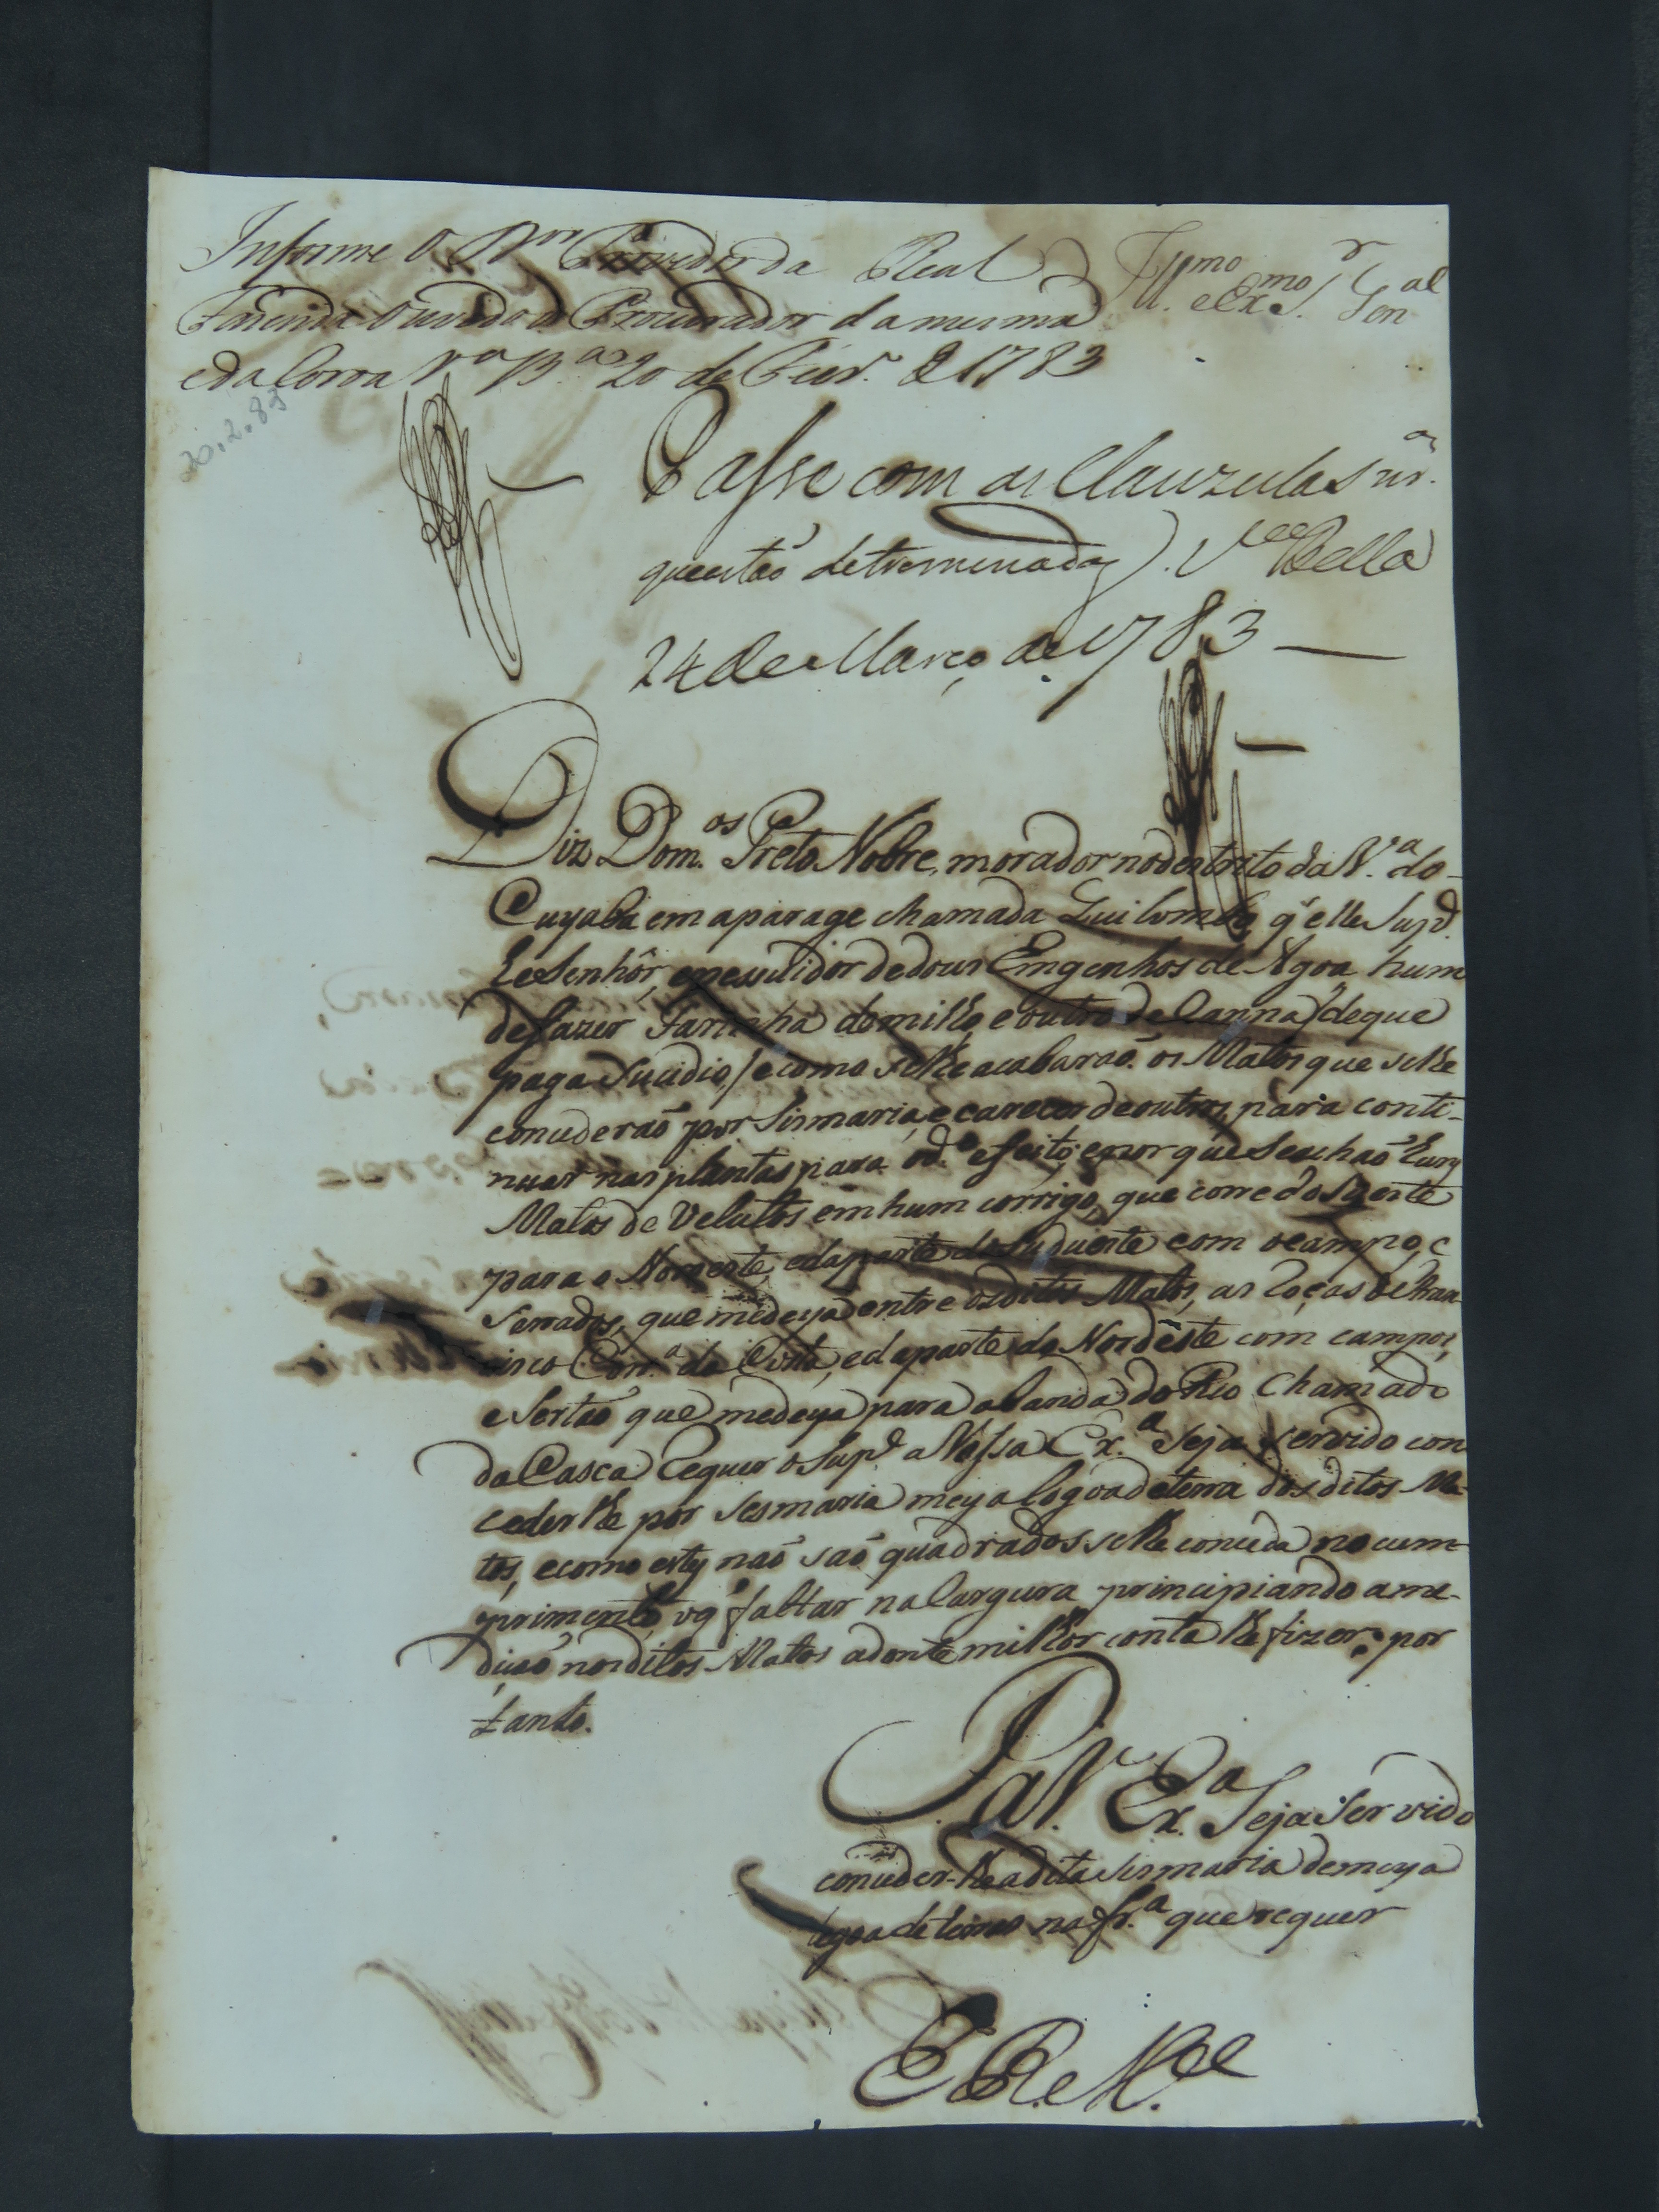 Informe o D.or Provedor da Real
Fazenda ouvido o Procurador da mesma
e da Coroa V.a B.a 20 de Fevr.o de 1783
Ill.mo e Ex.mo S.r Gen.al
20.2.83
Passe com as Clauzulas
que estaõ detreminadas. V.a Bella
24 de Março de 1783
Diz Dom.os Preto Nobre, morador no destrito da V.a do
Cuyaba em aparage chamada Quilombo, q' elle Sup.e
he Senhôr, epessuidor de dous Engenhos de Agoa, hum
de fazer Farinha de milho, e outro de Canna / de que
paga Sucidio, / e como se lhe acabaraõ os Matos que se lhe
concederaõ por Sismaria, e carece de outros, para conti-
nuar nas plantas para o d.o efeito; e por que se achaõ huns
Matos de Velutos em hum corrigo, que corre do Sueste
para o Noroeste, e da parte do Suduerte com o campo, e
Serrados, que medeya entre os ditos Matos, as roças de Fran-
cisco Corr.a da Costa, e da parte do Nordèste com campos,
e Sertaõ que medeya para a banda do Rio Chamado
da Casca Requer o Sup.e a Vossa Ex.a Seja Servido con
ceder lhe por Sesmaria meya legoa de terra dos ditos Ma-
tos, e como estes naõ saõ quadrados se lhe conceda no cum-
primento, o q' faltar na largura principiando ame-
diçaõ nos ditos Matos adonte milhor conta lhe fizer; por
tanto.
P. a V. Ex.a Seja Servido
conceder-lhe a dita Sismaria de meya
legoa de terras na fr.a que requer
E R. M.ce